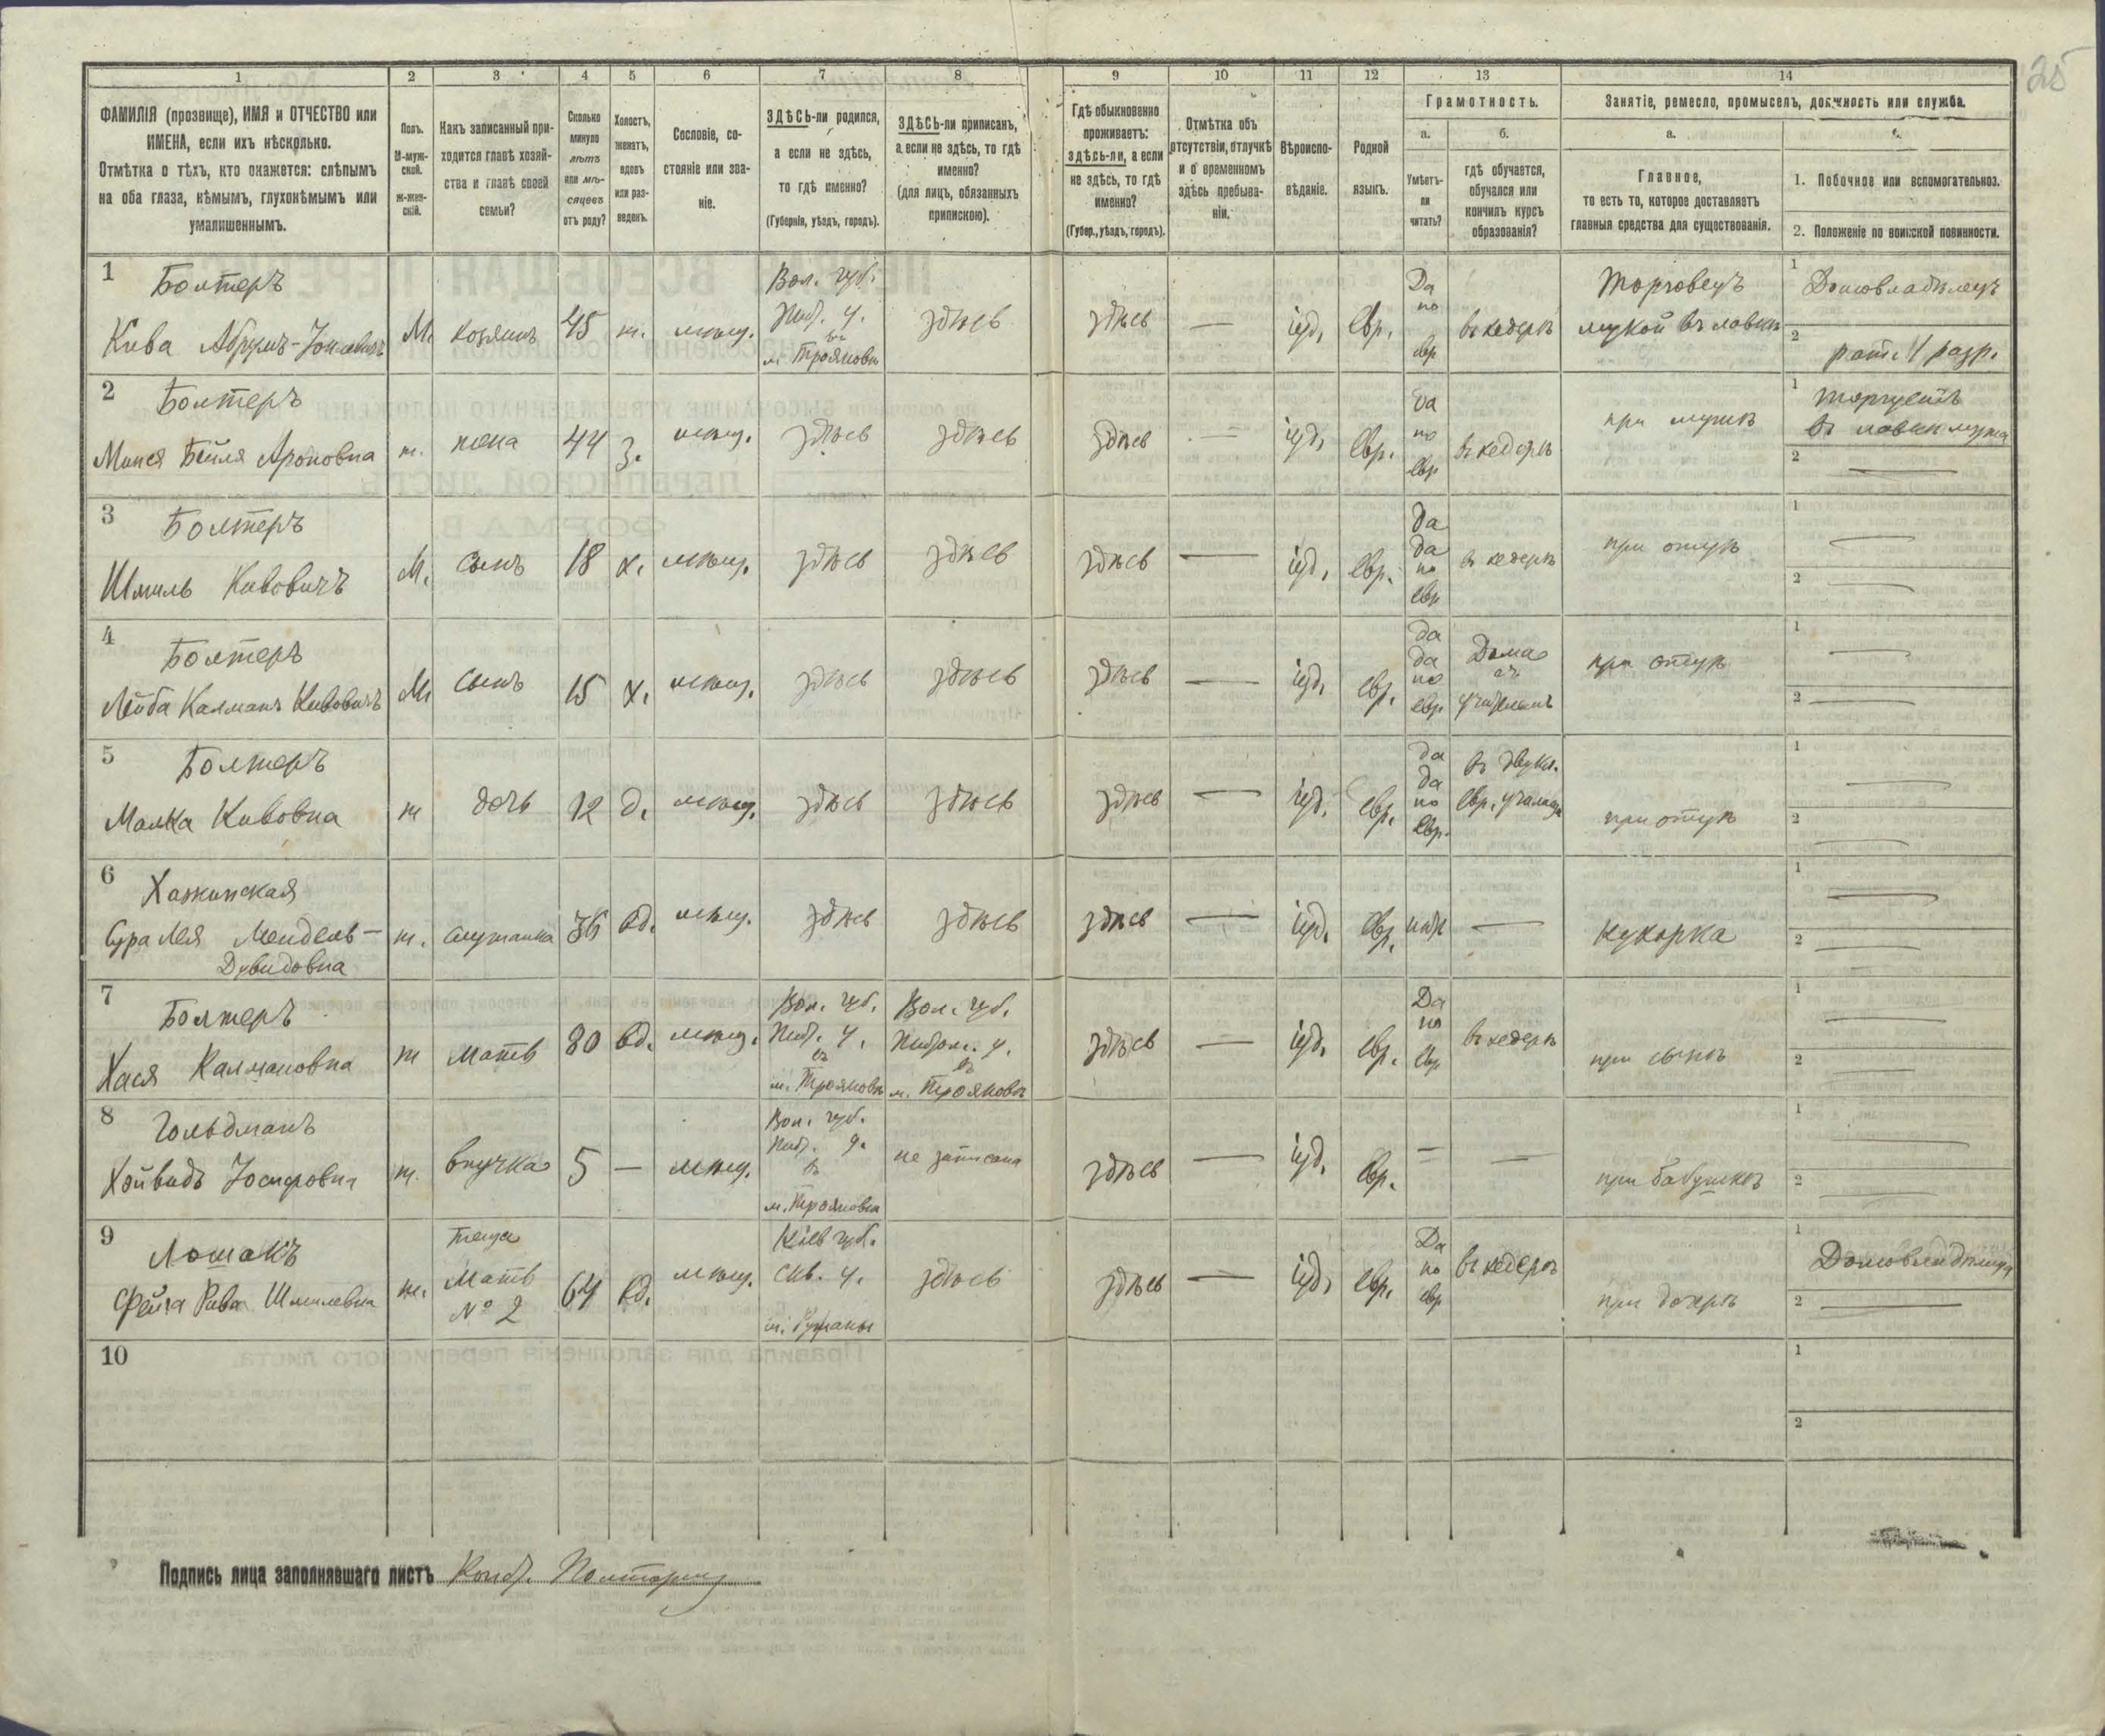 25
1 2 3 4 5 6 7 8 9 10 11 12 13 14
ФАМИЛІЯ (прозвище), ИМЯ и ОТЧЕСТВО или
ИМЕНА, если ихъ нѣсколько.
Отмѣтка о тѣхъ, кто окажется: слѣпымъ
на оба глаза, нѣмымъ, глухонѣмымъ или
умалишеннымъ.
Полъ.
М-муж-
ской.
ж-жен-
скій.
Какъ записанный при-
ходится главѣ хозяй-
ства и главѣ своей
семьи?
Сколько
минуло
лѣтъ
или мѣ-
сяцевъ
отъ роду?
Холостъ,
женатъ,
вдовъ
или раз-
веденъ.
Сословіе, со-
стояніе или зва-
ніе.
ЗДѢСЬ-ли родился,
а если не здѣсь,
то гдѣ именно?
(Губернія, уѣздъ, городъ).
ЗДѢСЬ-ли приписанъ,
а если не здѣсь, то гдѣ
именно?
(для лицъ, обязанныхъ
припискою).
Гдѣ обыкновенно
проживаетъ:
здѣсь-ли, а если
не здѣсь, то гдѣ
именно?
(Губер., уѣздъ, городъ).
Отмѣтка объ
отсутствіи, отлучкѣ
и о временномъ
здѣсь пребыва-
ніи.
Вѣроиспо-
вѣданіе.
Родной
языкъ.
Грамотность.
а.
Умѣетъ-
ли
читать?
б.
гдѣ обучается,
обучался или
кончилъ курсъ
образованія?
Занятіе, ремесло, промыселъ, должность или служба.
а.
Главное,
то есть то, которое доставляетъ
главныя средства для существованія.
1. Побочное или вспомогательное.
2. Положеніе по воинской повинности.
1
Болтеръ
Кива
М.
хозяинъ
45
ж.
мѣщ.
Вол. губ.
Жит. у.
въ
м. Трояновѣ
здѣсь
здѣсь
—
іуд.
Евр.
Да
по
евр
въ хедерѣ
Торговецъ
мукой въ лавкѣ
1
Домовладѣлецъ
2
рат. 1 разр.
2
Болтеръ
Бейля Ароновна
ж.
жена
44
З.
мѣщ.
здѣсь
здѣсь
здѣсь
—
іуд.
Евр.
да
по
Евр
въ хедерѣ
при мужѣ
1
торгуетъ
въ лавкѣ мужа
2 —
3
Болтеръ
Шмиль Кивовичъ
М.
сынъ
18
х.
мѣщ.
здѣсь
здѣсь
здѣсь
—
іуд.
Евр.
да
да
по
евр
въ хедерѣ
при отцѣ
1 —
2 —
4
Болтеръ
Лейба Калманъ Кивовичъ
М
сынъ
15
х.
мѣщ.
здѣсь
здѣсь
здѣсь
—
іуд.
евр.
да
да
по
евр
Дома
съ
учителемъ
при отцѣ
1 —
2 —
5
Болтеръ
Малка Кивовна
ж
дочь
12
д.
мѣщ.
здѣсь
здѣсь
здѣсь
—
іуд.
евр.
да
да
по
Евр.
въ двукл.
евр. училищѣ
при отцѣ
1 —
2 —
6
Хажинская
Сура Лея Мендель-
Дувидовна
ж.
служанка
36
вд.
мѣщ.
здѣсь
здѣсь
здѣсь
—
іуд.
Евр.
—
кухарка
1 —
2 —
7
Болтеръ
Хася Калмановна
ж
мать
80
вд.
мѣщ.
Вол. губ.
Жит. у.
въ
м. Трояновѣ
Вол. губ.
Житом. у.
въ
м. Трояновѣ
здѣсь
—
іуд.
евр.
Да
по
Евр
въ хедерѣ
при сынѣ
1 —
2 —
8
Гольдманъ
ж.
внучка
5
—
мѣщ.
Вол. губ.
Жит. у.
въ
м. Трояновѣ
не записана
здѣсь
—
іуд.
Евр.
—
—
при бабушкѣ
1 —
2 —
9
Лошакъ
Фейга Рива Шмилевна
ж.
теща
мать
№ 2
64
вд.
мѣщ.
Кіев губ.
Скв. у.
здѣсь
здѣсь
—
іуд.
евр.
Да
по
евр
въ хедерѣ
при дочерѣ
1
Домовладѣлица
2 —
10
1
2
Подпись лица заполнявшаго листъ